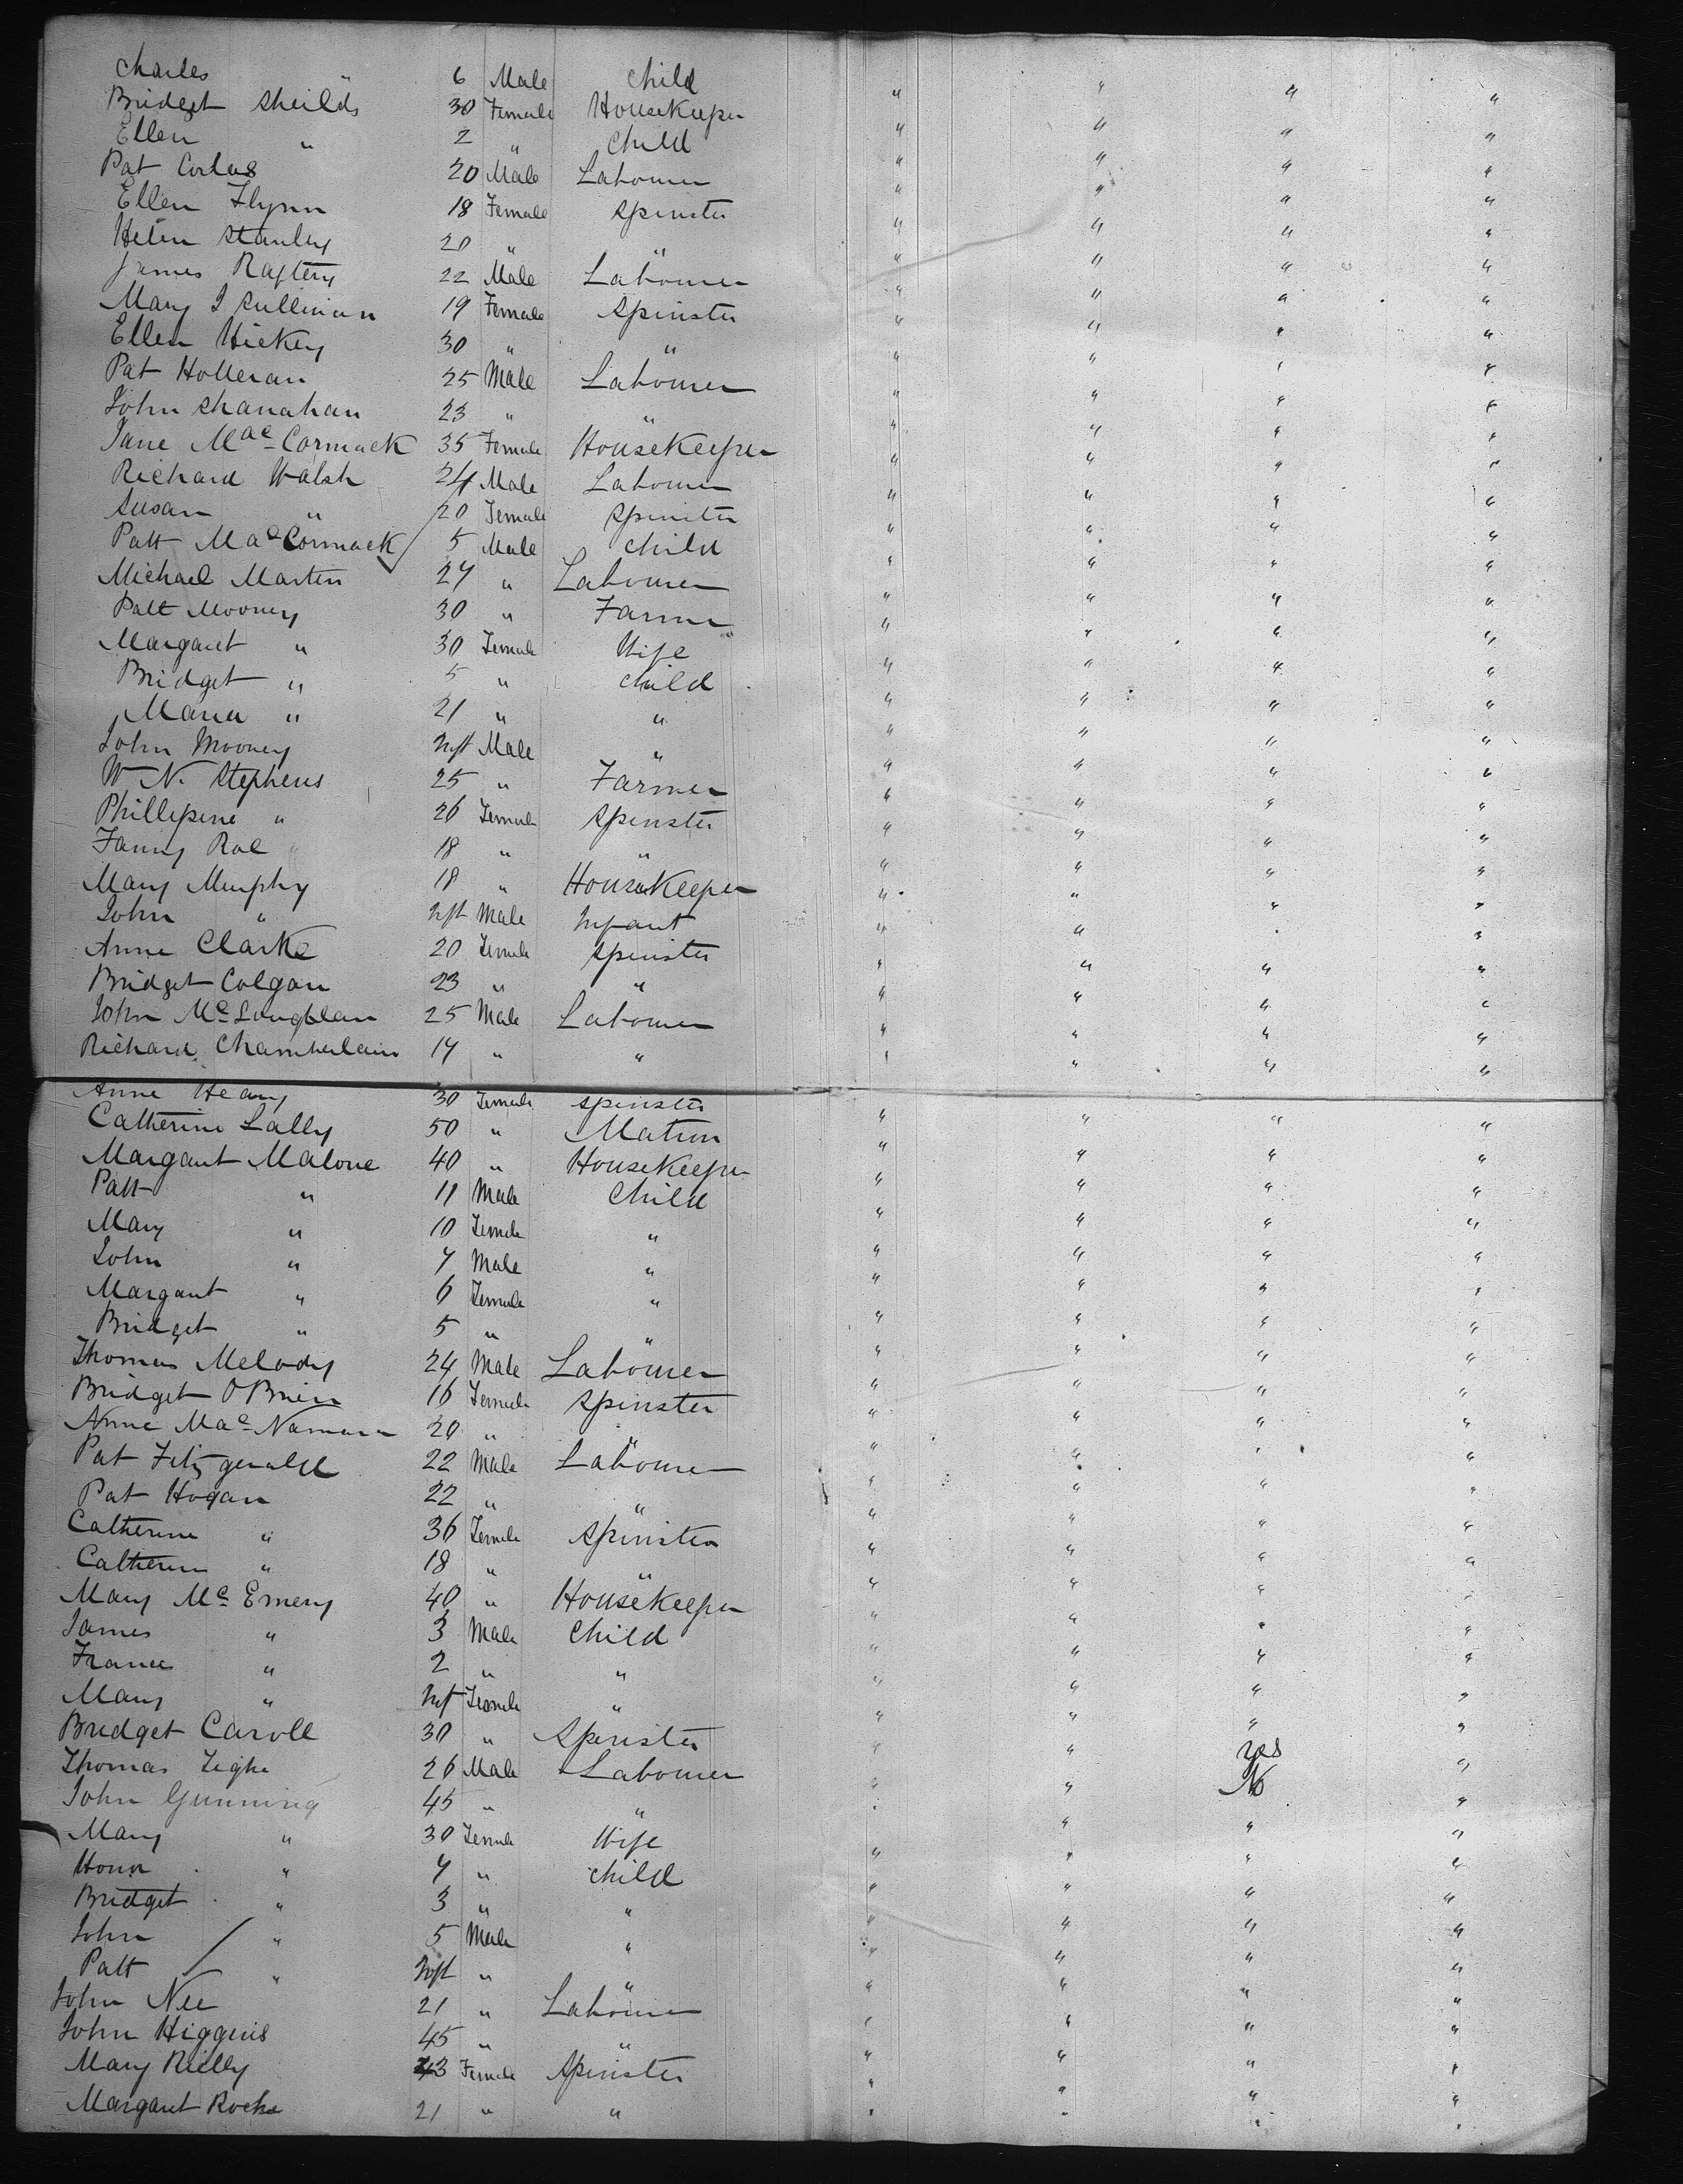 Charles " 6 Male Child " " " "
Bridget Sheilds 30 Female HouseKeeper " " " "
Ellen " 2 " Child " " " "
Pat 20 Male Labourer " " " "
Ellen Flynn 18 Female Spinster " " " "
Helen Stanley 20 " " " " " "
James Raftery 22 Male Labourer " " " "
Mary J Sullivan 19 Female Spinster " " " "
Ellen Hickey 30 " " " " " "
Pat Holleran 25 Male Labourer " " " "
John Shanahan 23 " " " " " "
Jane Mac Cormack 35 Female HouseKeeper " " " "
Richard Walsh 24 Male Labourer " " " "
Susan " 20 Female Spinster " " " "
Patt Mac Cormack 5 Male Child " " " "
Michael Martin 27 " Labourer " " " "
Patt Mooney 30 " Farmer " " " "
Margaret " 30 Female Wife " " " "
Bridget " 5 " Child " " " "
Maria " 21 " " " " " "
John Mooney Inft Male " " " " "
W N. Stephens 25 " Farmer " " " "
Phillipine " 26 Female Spinster " " " "
Fanny Roe 18 " " " " " "
Mary Murphy 18 " HouseKeeper " " " "
John " Inft Male Infant " " " "
Anne Clarke 20 Female Spinster " " " "
Bridget Colgan 23 " " " " " "
John Mc Loughlan 25 Male Labourer " " " "
Richard Chamberlain 17 " " " " " "
Anne Heany 30 Female Spinster
Catherine Lally 50 " Matron " " " "
Margaret Malone 40 " HouseKeeper " " " "
Patt " 11 Male Child " " " "
Mary " 10 Female " " " " "
John " 7 Male " " " " "
Margaret " 6 Female " " " " "
Bridget " 5 " " " " " "
Thomas Melody 24 Male Labourer " " " "
Bridget O Brien 16 Female Spinster " " " "
Anne Mac Namara 20 " " " " " "
Pat Fitzgerald 22 Male Labourer " " " "
Pat Hogan 22 " " " " " "
Catherine " 36 Female Spinster " " " "
Catherine " 18 " " " " " "
Mary Mc Emery 40 " HouseKeeper " " " "
James " 3 Male Child " " " "
Frances " 2 " " " " " "
Mary " Inft Female " " " " "
Bridget Caroll 30 " Spinster " " " "
Thomas Tighe 26 Male Labourer " " yes "
John Gunning 45 " " " " No "
Mary " 30 Female Wife " " " "
Honor " 7 " Child " " " "
Bridget " 3 " " " " " "
John " 5 Male " " " " "
Patt " Inft " " " " " "
John Nee 21 " Labourer " " " "
John Higgins 45 " " " " " "
Mary Rielly 43 Female Spinster " " " "
Margaret Roche 21 " " " " " "